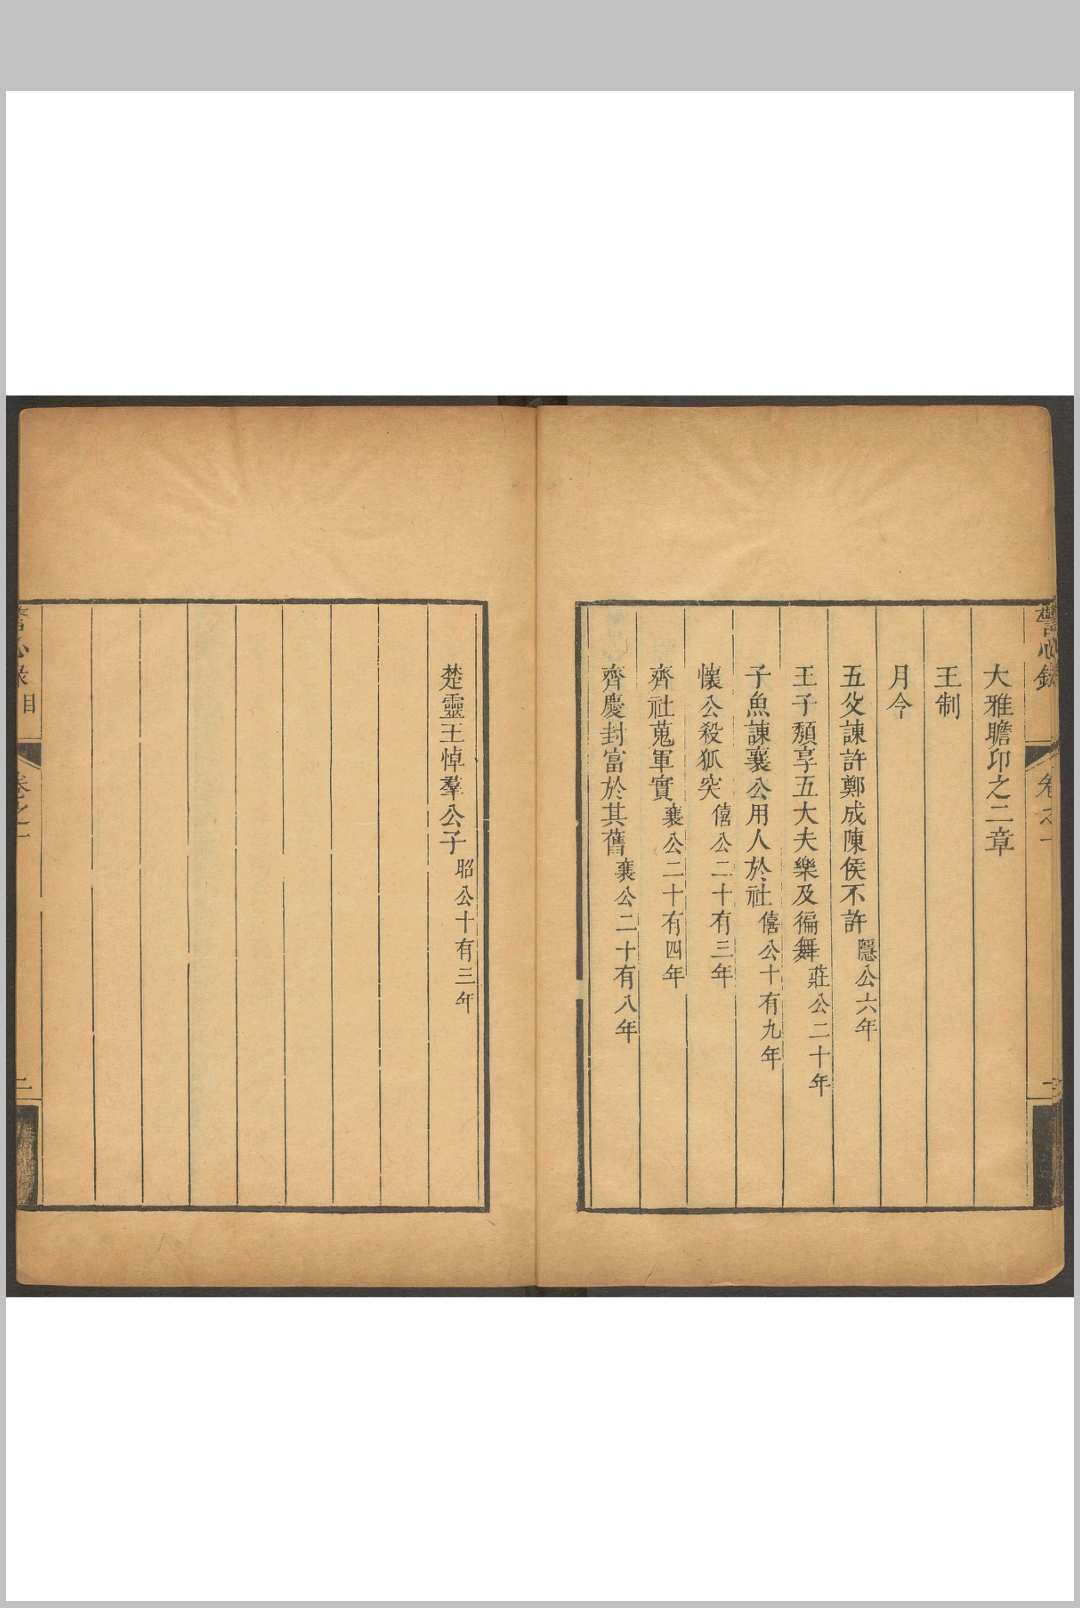 警心錄
卷之一
大雅瞻卬之二章
王制
月令
五父諫許鄭成陳侯不許 隱公六年
王子頹享五大夫樂及徧舞 莊公二十年
子魚諫襄公用人於社 僖公十有九年
懷公殺狐突 僖公二十有三年
齊社蒐軍實 襄公二十有四年
齊慶封富於其舊 襄公二十有八年
楚靈王悼羣公子 昭公十有三年
警心錄目
卷之一
二